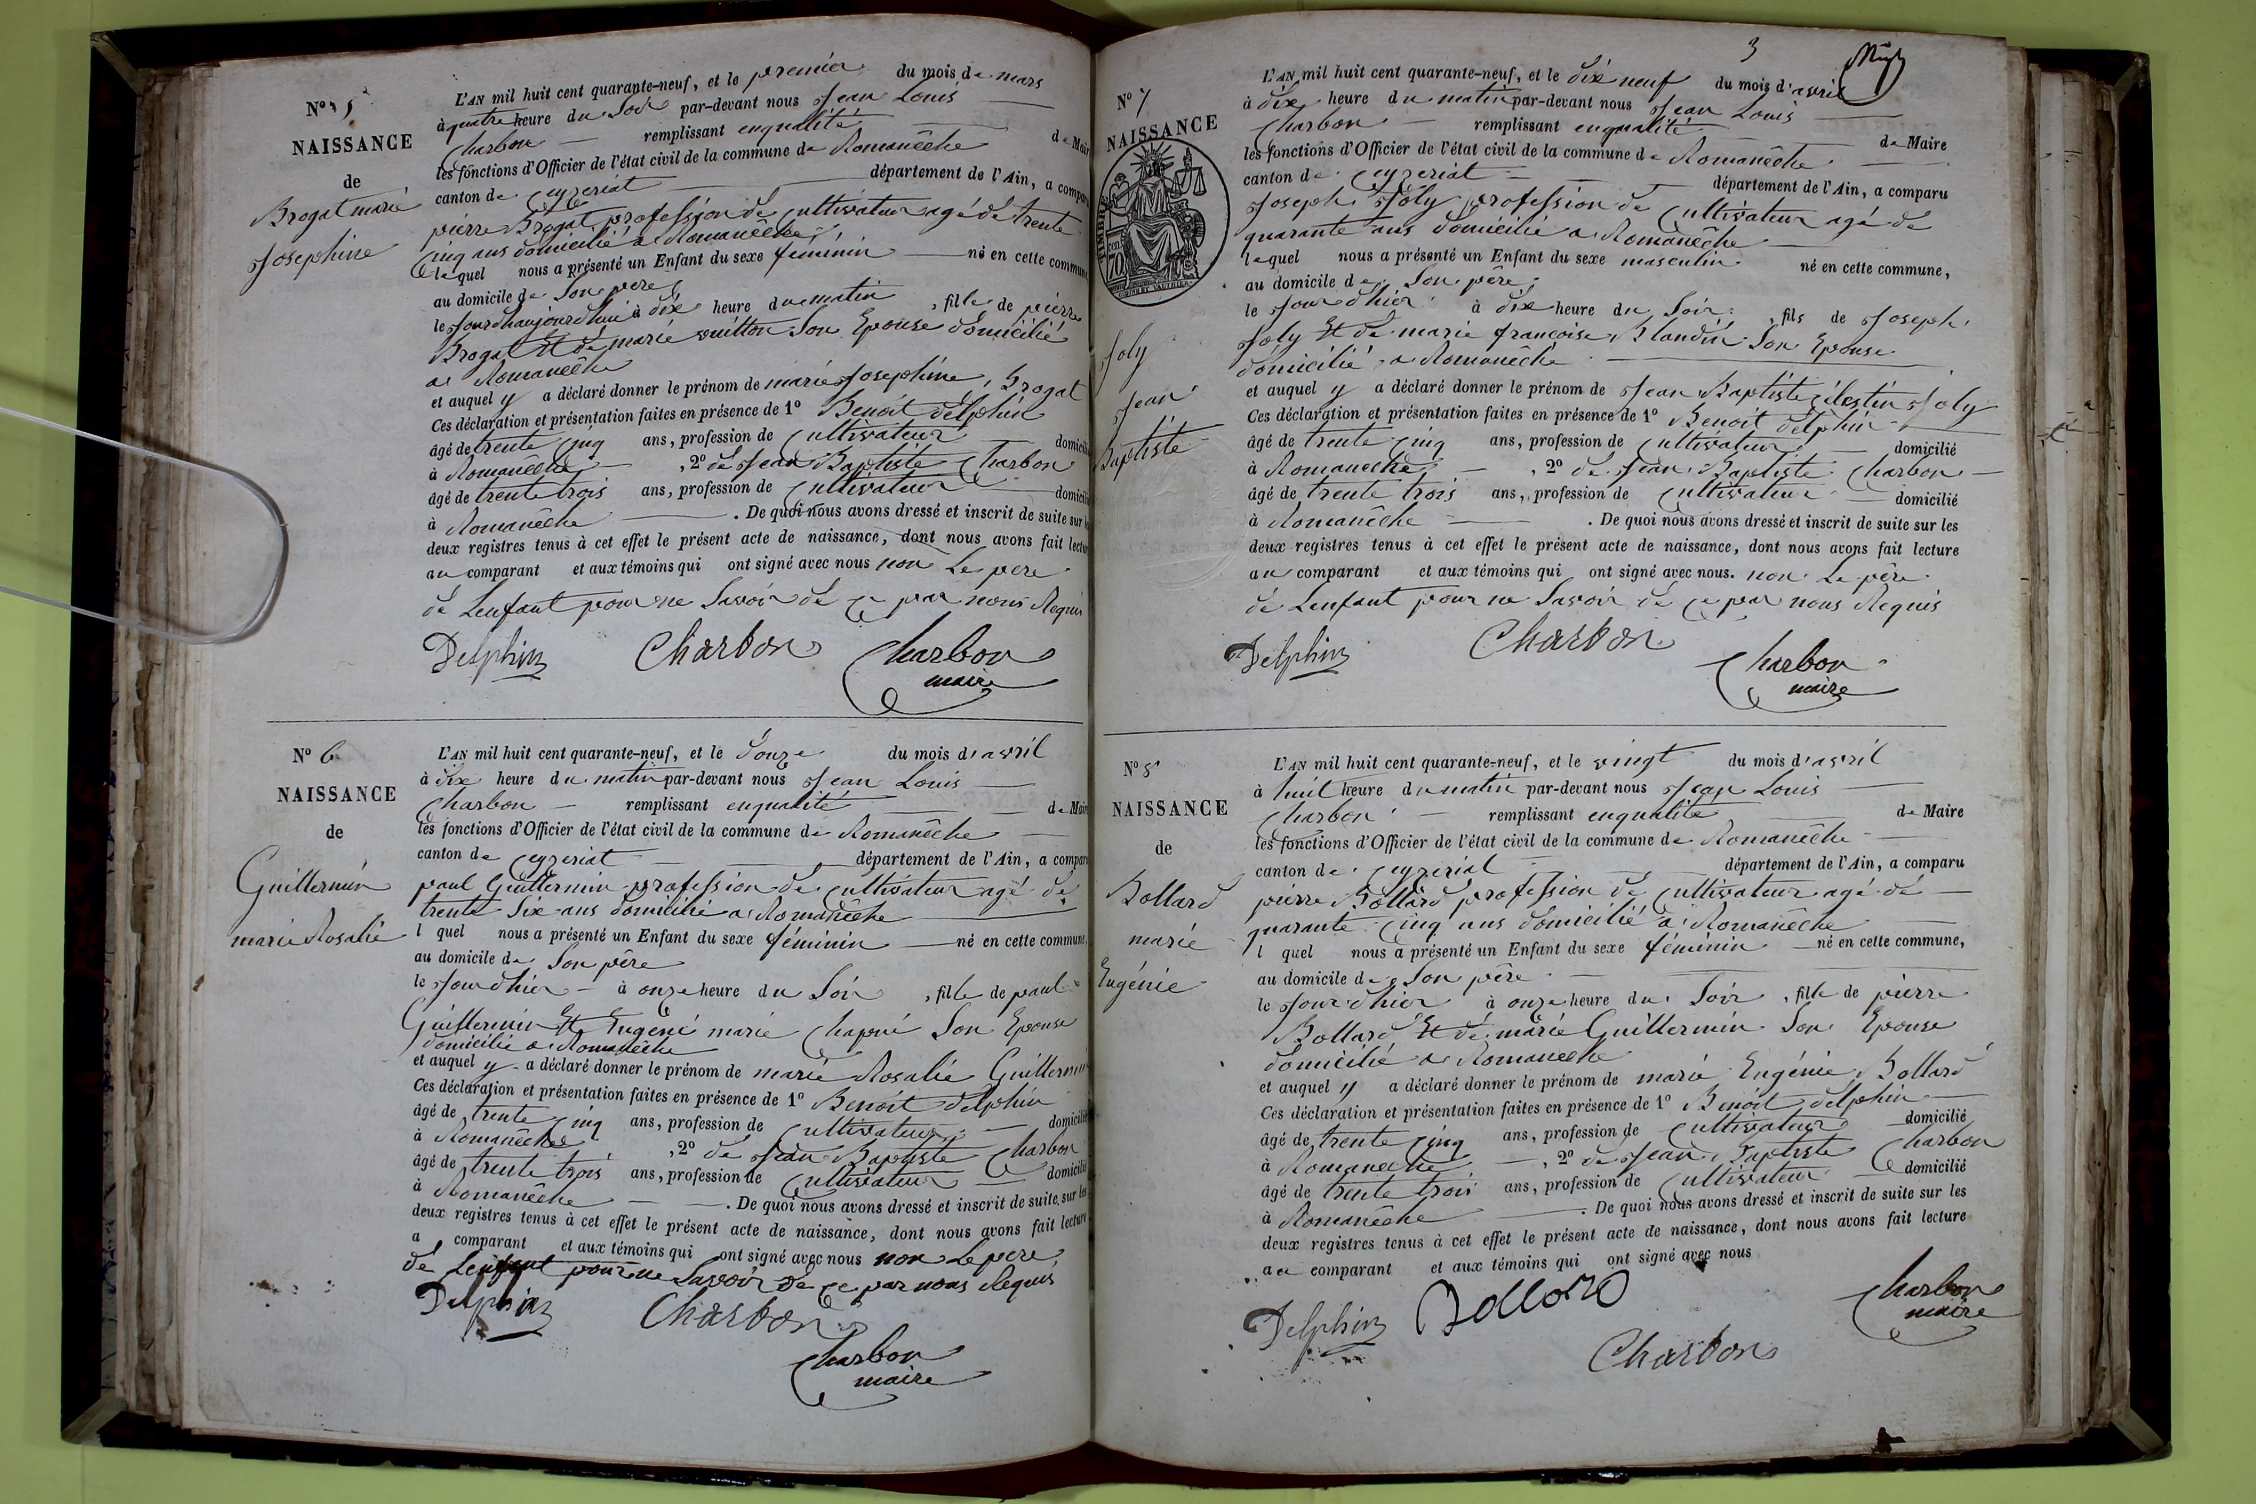 N° 5
NAISSANCE
de
Brogat marie
Josephine
L'AN mil huit cent quarante-neuf, et le premier du mois de mars
à quatre heure du Soir par-devant nous Jean Louis
Charbon remplissant enqualité de Maire
les fonctions d'Officier de l'état civil de la commune de Romanêche
canton de Ceyzeriat département de l'Ain, a comparu
pierre Brogat profession de Cultivateur agé de trente
Cinq ans domicilié a Romanêche
lequel nous a présenté un Enfant du sexe féminin né en cette commune
au domicile de Son père
le Jourdhaujourdhui à dix heure du matin , fille de pierre
Brogat Et de marie vuitton Son Epouse domicilié
a Romanêche
et auquel y a déclaré donner le prénom de marie Josephine, Brogat
Ces déclaration et présentation faites en présence de 1° Benoit delphin
âgé de trente Cinq ans, profession de Cultivateur domicilié
à Romanêche , 2° de Jean Baptiste Charbon
âgé de trente trois ans, profession de Cultivateur domicilié
à Romanêche . De quoi nous avons dressé et inscrit de suite sur les
deux registres tenus à cet effet le présent acte de naissance, dont nous avons fait lecture
au comparant et aux témoins qui ont signé avec nous non Le pere
de Lenfant pour ne Savoir de Ce par nous Requis
Delphin Charbon Charbon
maire
N° 6
NAISSANCE
de
Guillermin
marie Rosalie
L'AN mil huit cent quarante-neuf, et le douze du mois d'avril
à dix heure du matin par-devant nous Jean Louis
Charbon remplissant enqualité de Maire
les fonctions d'Officier de l'état civil de la commune de Romanêche
canton de Ceyzeriat département de l'Ain, a comparu
paul Guillermin profession de Cultivateur agé de
trente Six ans domicilié a Romanêche
l quel nous a présenté un Enfant du sexe féminin né en cette commune,
au domicile de Son père
le Jour dhier à onze heure du Soir , fille de paul
Guillermin Et Eugené marie Chapué Son Epouse
domicilié a Romanêche
et auquel y a déclaré donner le prénom de marie Rosalie Guillermin
Ces déclaration et présentation faites en présence de 1° Benoit delphin
âgé de trente Cinq ans, profession de Cultivateur domicilié
à Romanêche , 2° de Jean Baptiste Charbon
âgé de trente trois ans, profession de Cultivateur domicilié
à Romanêche . De quoi nous avons dressé et inscrit de suite sur les
deux registres tenus à cet effet le présent acte de naissance, dont nous avons fait lecture
a comparant et aux témoins qui ont signé avec nous non Le pere
de Lenfant pour ne Savoir de Ce par nous Requis
Delphin Charbon
Charbon
maire
3
N° 7
NAISSANCE
TIMBRE
70
Joly
Jean
Baptiste
L'AN mil huit cent quarante-neuf, et le dix neuf du mois d'avril
à dix heure du matin par-devant nous Jean Louis
Charbon remplissant enqualité de Maire
les fonctions d'Officier de l'état civil de la commune de Romanêche
canton de Ceyzeriat département de l'Ain, a comparu
Joseph Joly profession de Cultivateur agé de
quarante ans domicilié a Romanêche
lequel nous a présenté un Enfant du sexe masculin né en cette commune,
au domicile de Son père
le Jour dhier à dix heure du Soir , fils de Joseph
Joly Et de marie françoise Blandin Son Epouse
domicilié a Romanêche
et auquel y a déclaré donner le prénom de Jean Baptiste Célestin Joly
Ces déclaration et présentation faites en présence de 1° Benoit delphin
âgé de trente Cinq ans, profession de Cultivateur domicilié
à Romaneche , 2° de Jean Baptiste Charbon
âgé de trente trois ans, profession de Cultivateur domicilié
à Romanêche . De quoi nous avons dressé et inscrit de suite sur les
deux registres tenus à cet effet le présent acte de naissance, dont nous avons fait lecture
au comparant et aux témoins qui ont signé avec nous. non Le père
de Lenfant pour ne Savoir de Ce par nous Requis
Delphin Charbon Charbon
maire
N° 8
NAISSANCE
de
Bollard
marie
Eugénie
L'AN mil huit cent quarante-neuf, et le vingt du mois d'avril
à huit heure du matin par-devant nous Jean Louis
Charbon remplissant enqualité de Maire
les fonctions d'Officier de l'état civil de la commune de Romanêche
canton de Ceyzeriat département de l'Ain, a comparu
pierre Bollard profession de Cultivateur agé de
quarante Cinq ans domicilié a Romanêche
l quel nous a présenté un Enfant du sexe féminin né en cette commune,
au domicile de Son père
le Jour dhier à onze heure du Soir , fille de pierre
Bollard Et de marie Guillermin Son Epouse
domicilié a Romaneche
et auquel y a déclaré donner le prénom de marie Eugénie Bollard
Ces déclaration et présentation faites en présence de 1° Benoit delphin
âgé de trente Cinq ans, profession de Cultivateur domicilié
à Romaneche , 2° de Jean Baptiste Charbon
âgé de trente trois ans, profession de Cultivateur domicilié
à Romanêche . De quoi nous avons dressé et inscrit de suite sur les
deux registres tenus à cet effet le présent acte de naissance, dont nous avons fait lecture
au comparant et aux témoins qui ont signé avec nous
Delphin Bollard Charbon
maire
Charbon